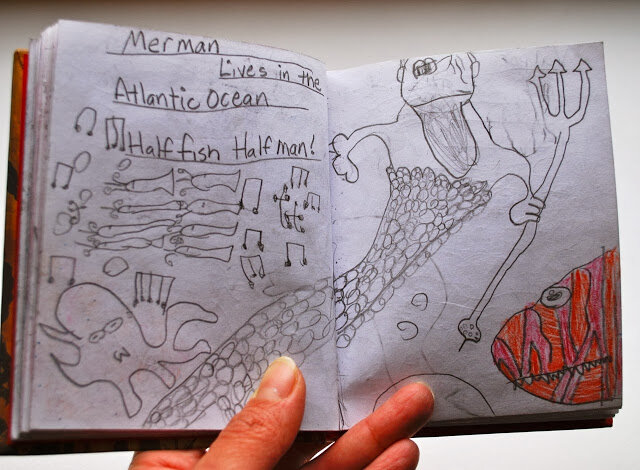 Merman
Lives in the
Atlantic Ocean
Half fish Half man!